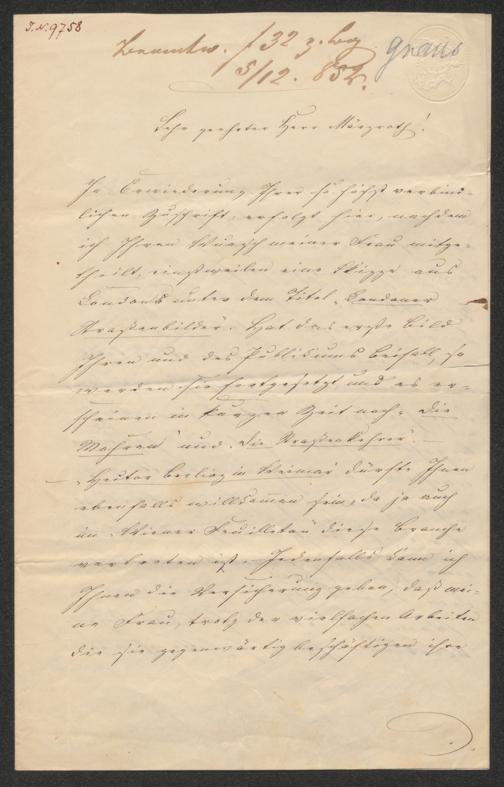 I.N. 9758
Beantw. f 32 z. Log
5/12. 852.
Sehr geehrter Herr Märzroth!
In Erwiederung Ihrer so höchst verbind-
lichen Zuschrift, erfolgt hier, nachdem
ich Ihren Wunsch meiner Frau mitge-
theilt, einstweilen eine Skizze aus
London unter dem Titel „Londoner
Straßenbilder". Hat das erste Bild
Ihren und des Publikums Beifall, so
werden sie fortgesetzt und es er-
scheinen in kurzer Zeit noch: „Die
Mohren" und „die Straßenkehrer". —
— „Hector Berlioz in Weimar" dürfte Ihnen
ebenfalls willkommen sein, da ja auch
im „Wiener Feuilleton" diese Branche
vertreten ist. Jedenfalls kann ich
Ihnen die Versicherung geben, daß mei-
ne Frau, trotz der vielfachen Arbeiten
die sie gegenwärtig beschäftigen ihre